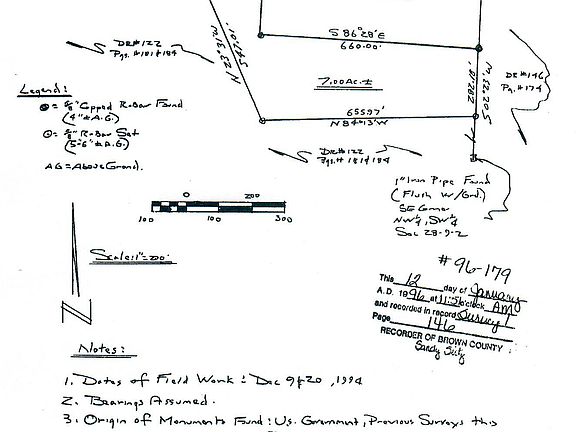 S 86°28'E
660.00'
DR#122
Pgs.# 181 & 184
N 23°16'W
541.01'
7.00Ac.±
DR#146
Pg.#174
Legend:
= 5/8" Capped R-Bar Found
(4"± A.G.)
= 5/8" R-Bar Set
(5-6"± A.G.)
AG = Above Ground.
655.97'
N84°13'W
DR#122
Pgs.# 181 & 184
1" Iron Pipe Found
(Flush W/Grd.)
SE Corner
NW¼, SW¼
Sec 28-9-2
0 200
100 100 300
Scale: 1"=200'
N
#96-179
This 12 day of January
A.D. 1996 at 11:51 o'clock AM
and recorded in record Survey 1
Page 146
RECORDER OF BROWN COUNTY
Sandy Seitz
Notes:
1. Dates of Field Work: Dec 9 & 20, 1994
2. Bearings Assumed.
3. Origin of Monuments Found: U.S. Government, Previous Surveys this